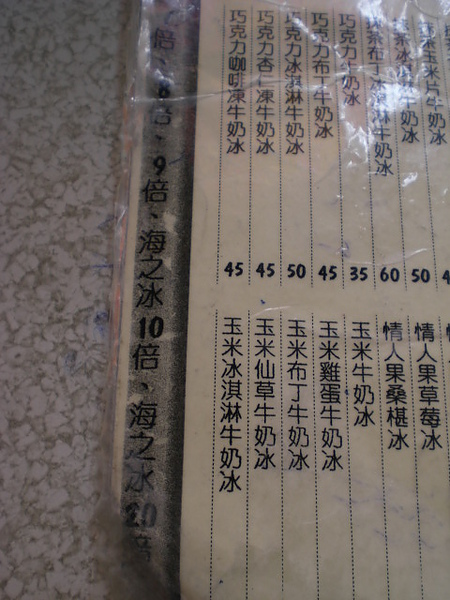 玉米片牛奶冰
冰淇淋牛奶冰
50
布丁冰淇淋牛奶冰
60
巧克力牛奶冰
35
巧克力布丁牛奶冰
45
巧克力冰淇淋牛奶冰
50
巧克力杏仁凍牛奶冰
45
巧克力咖啡凍牛奶冰
45
情人果草莓冰
情人果桑椹冰
玉米牛奶冰
玉米雞蛋牛奶冰
玉米布丁牛奶冰
玉米仙草牛奶冰
玉米冰淇淋牛奶冰
倍、8倍、9倍、海之冰10倍、海之冰20倍